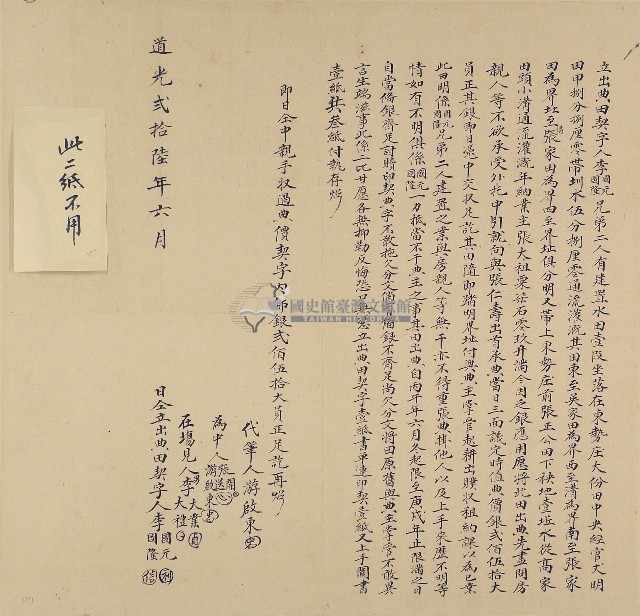 立出典田契字人李國元國隆兄弟二人有建置水田壹段坐落在東勢庄大份田中央經官丈明
田甲捌分捌厘零帶圳水伍分捌厘零通流灌溉其田東至吳家田為界西至溝為界南至張家
田為界北至張家田為界四至界址俱分明又帶上東勢庄前張正公田下秧地壹坵水從高家
田頭小溝通流灌溉年納業主張大租粟柒石零玖升滿今因乏銀應用愿將此田出典先盡問房
親人等不欲承受外托中引就向與張仁壽出首承典當日三面議定時值典價銀貳佰伍拾大
員正其銀即日憑中交收足訖其田隨即踏明界址付與典主掌管起耕出贌收租納課以為己業
此田明係國元國隆兄弟二人建置之業與房親人等無干亦不得重張典掛他人以及上手來歷不明等
情如有不明俱係國元國隆一力抵當不干典主之事其田出典自丙午年六月冬起限至庚戌年止限滿之日
自當備銀齊足訂贖印契典字不敢拖欠分文倘備銀不齊足尚欠分文將田原舊與典主掌管不敢異
言生端滋事此係二比甘愿各無抑勒反悔恐口無憑立出典田契字壹紙書單連印契壹紙又上手鬮書
壹紙共叁紙付執存炤
即日仝中親手收過典價契字內佛銀貳佰伍拾大員正足訖再炤
代筆人游啟東
為中人張送游啟東
在場見人李大業大禮
道光貳拾陸年六月　日仝立出典田契字人李國元國隆
此二紙不用
國史館臺灣文獻館
TAIWAN HISTORICA